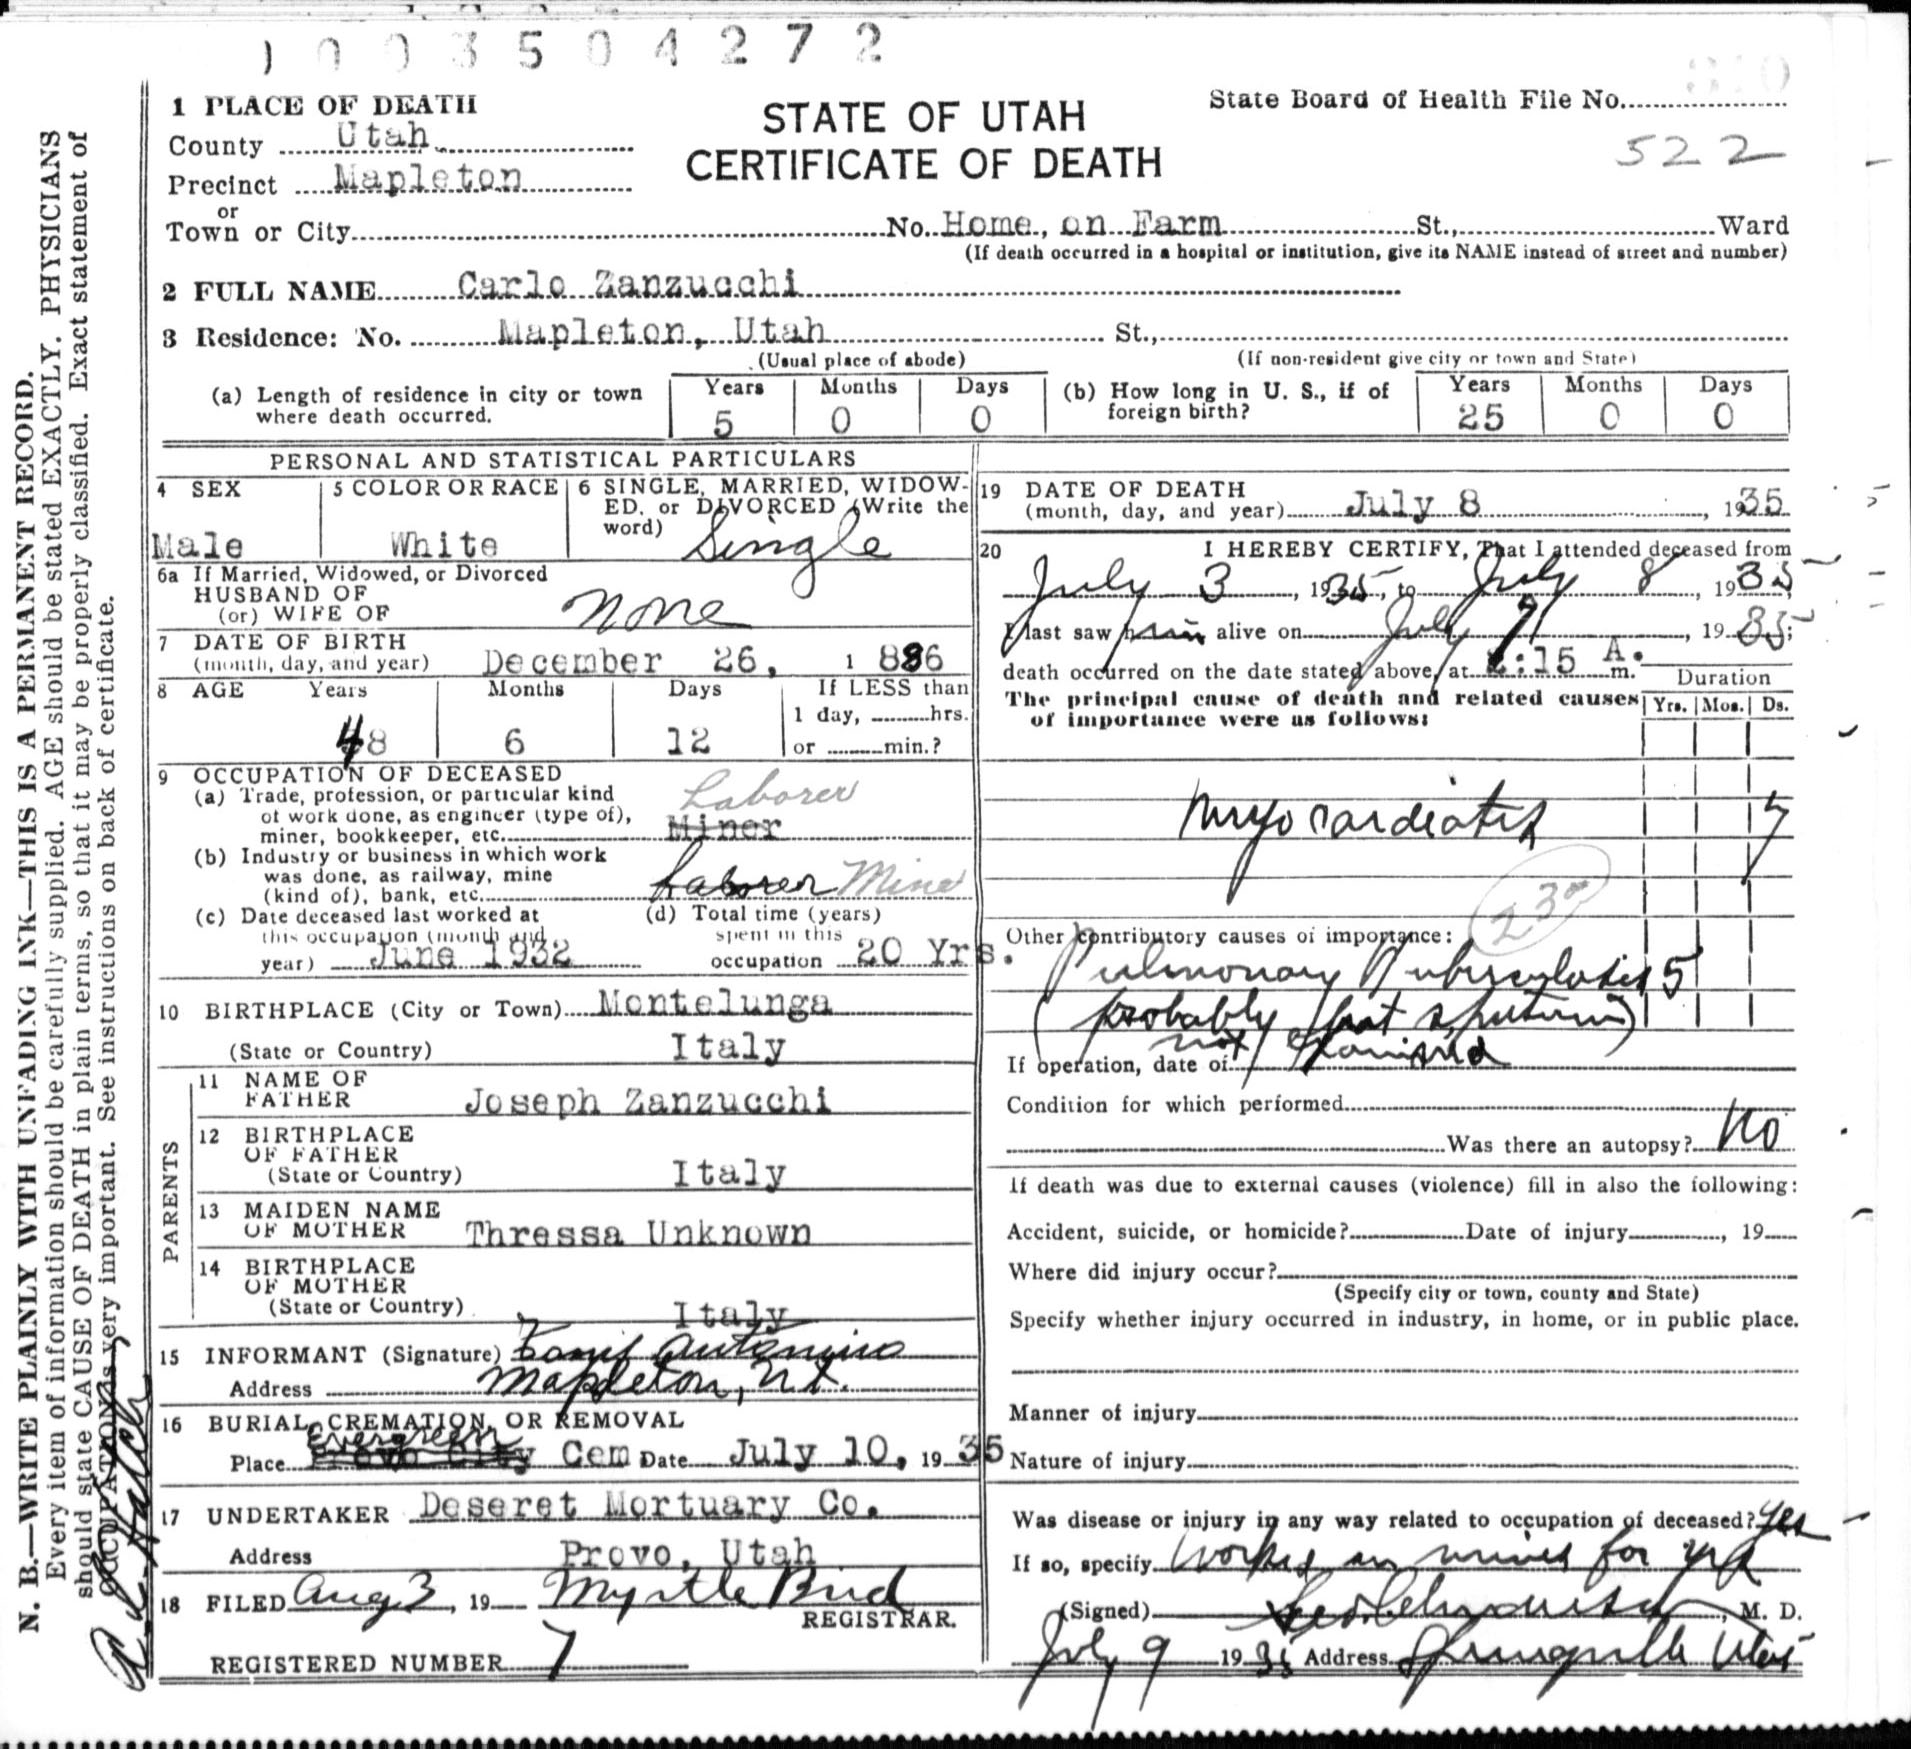 1003504272
310
1 PLACE OF DEATH
STATE OF UTAH
CERTIFICATE OF DEATH
State Board of Health File No.
522
County Utah
Precinct Mapleton
or
Town or City No. Home, on Farm St., Ward
(If death occurred in a hospital or institution, give its NAME instead of street and number)
2 FULL NAME Carlo Zanzucchi
3 Residence: No. Mapleton, Utah St.,
(Usual place of abode) (If non-resident give city or town and State)
(a) Length of residence in city or town where death occurred. Years 5 Months 0 Days 0
(b) How long in U. S., if of foreign birth? Years 25 Months 0 Days 0
PERSONAL AND STATISTICAL PARTICULARS
4 SEX
Male
5 COLOR OR RACE
White
6 SINGLE, MARRIED, WIDOW-
ED, or DIVORCED (Write the
word) Single
6a If Married, Widowed, or Divorced
HUSBAND OF
(or) WIFE OF None
7 DATE OF BIRTH
(month, day, and year) December 26, 1886
8 AGE Years Months Days If LESS than
1 day, hrs.
48 6 12 or min.?
9 OCCUPATION OF DECEASED
(a) Trade, profession, or particular kind Laborer
of work done, as engineer (type of),
miner, bookkeeper, etc. Miner
(b) Industry or business in which work
was done, as railway, mine
(kind of), bank, etc. Laborer Mine
(c) Date deceased last worked at
this occupation (month and
year) June 1932
(d) Total time (years)
spent in this
occupation 20 Yrs.
10 BIRTHPLACE (City or Town) Montelunga
(State or Country) Italy
PARENTS
11 NAME OF
FATHER Joseph Zanzucchi
12 BIRTHPLACE
OF FATHER
(State or Country) Italy
13 MAIDEN NAME
OF MOTHER Thressa Unknown
14 BIRTHPLACE
OF MOTHER
(State or Country) Italy
15 INFORMANT (Signature) Antonino
Address Mapleton, Ut.
16 BURIAL, CREMATION, OR REMOVAL
Evergreen
Place Provo City Cem Date July 10, 1935
17 UNDERTAKER Deseret Mortuary Co.
Address Provo, Utah
18 FILED Aug 3, 19 Myrtle Bird
REGISTRAR.
REGISTERED NUMBER 7
19 DATE OF DEATH
(month, day, and year) July 8, 1935
20 I HEREBY CERTIFY, That I attended deceased from
July 3, 1935, to July 8, 1935
I last saw him alive on July 7, 1935;
death occurred on the date stated above, at :15 A. m.
Duration
The principal cause of death and related causes
of importance were as follows:
Yrs. Mos. Ds.
Myocardiatis 7
23a
Other contributory causes of importance:
Pulmonary Tuberculosis 5
(probably but sputum)
not examined
If operation, date of
Condition for which performed
Was there an autopsy? No
If death was due to external causes (violence) fill in also the following:
Accident, suicide, or homicide? Date of injury, 19
Where did injury occur?
(Specify city or town, county and State)
Specify whether injury occurred in industry, in home, or in public place.
Manner of injury
Nature of injury
Was disease or injury in any way related to occupation of deceased? Yes
If so, specify Worked in mines for yrs
(Signed) , M. D.
July 9 1935 Address Springville Utah
N. B.—WRITE PLAINLY WITH UNFADING INK—THIS IS A PERMANENT RECORD.
Every item of information should be carefully supplied. AGE should be stated EXACTLY. PHYSICIANS
should state CAUSE OF DEATH in plain terms, so that it may be properly classified. Exact statement of
OCCUPATION is very important. See instructions on back of certificate.
Hatch